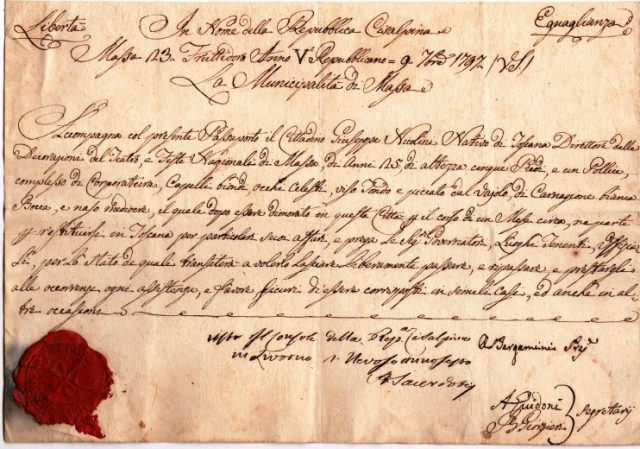 Libertà In Nome della Repubblica Cisalpina Eguaglianza
Massa 23. Fruttidoro Anno V Repubblicano = 9. 7bre 1797. (V.S.)
La Municipalità di Massa
Accompagna col presente Passaporto il Cittadino Giuseppe Nicolini Nativo di Toscana Direttore delle
Decorazioni del Teatro, e Feste Nazionali di Massa, di Anni 25, di altezza cinque Piedi, e un Pollice,
complesso di Corporatura, Capelli biondi, occhi Celesti, viso Tondo e di Carnagione bianca
Bocca, e naso mediocre, il quale dopo essere dimorato in questa Città il corso di un Mese circa, ne parte
restituirsi in Toscana per particolari suoi affari, e prega le Sig. Governatori, Luoghi Tenenti,
per lo Stato de quali transiterà a volerlo lasciare liberamente passare, e ripassare, e prestargli
alle occorenze ogni assistenza, e favore sicuri di essere corrisposti in simili Casi, ed anche in al
tre occasioni
visto Il Console della Rep.a Cisalpina A. Bergamini
in Livorno Nevoso
A Sacerdoti
A Guidoni
Segretarj